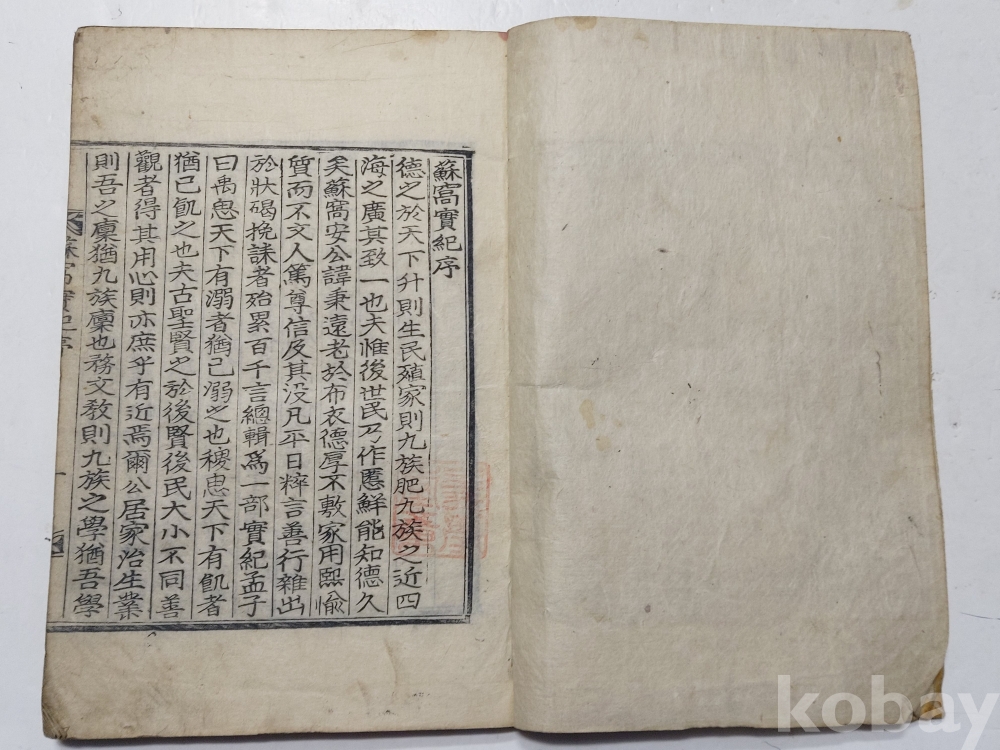 蘇窩實紀序
德之於天下升則生民殖家則九族肥九族之近四
海之廣其致一也夫惟後世民乃作慝鮮能知德久
矣蘇窩安公諱秉遠老於布衣德厚不敷家用熙愉
質而不文人篤尊信及其没凡平日粹言善行雜出
於狀碣挽誄者殆累百千言總輯爲一部實紀孟子
曰禹思天下有溺者猶己溺之也稷思天下有飢者
猶己飢之也夫古聖賢之於後賢後民大小不同善
觀者得其用心則亦庶乎有近焉爾公居家治生業
則吾之廩猶九族廩也務文教則九族之學猶吾學
蘇窩實紀序
一
kobay